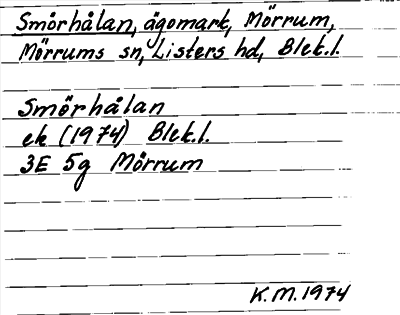 Smörhålan, ägomark, Mörrum,
Mörrums sn, Listers hd, Blek.l.
Smörhålan
ek (1974) Blek.l.
3E 5g Mörrum
K.M. 1974